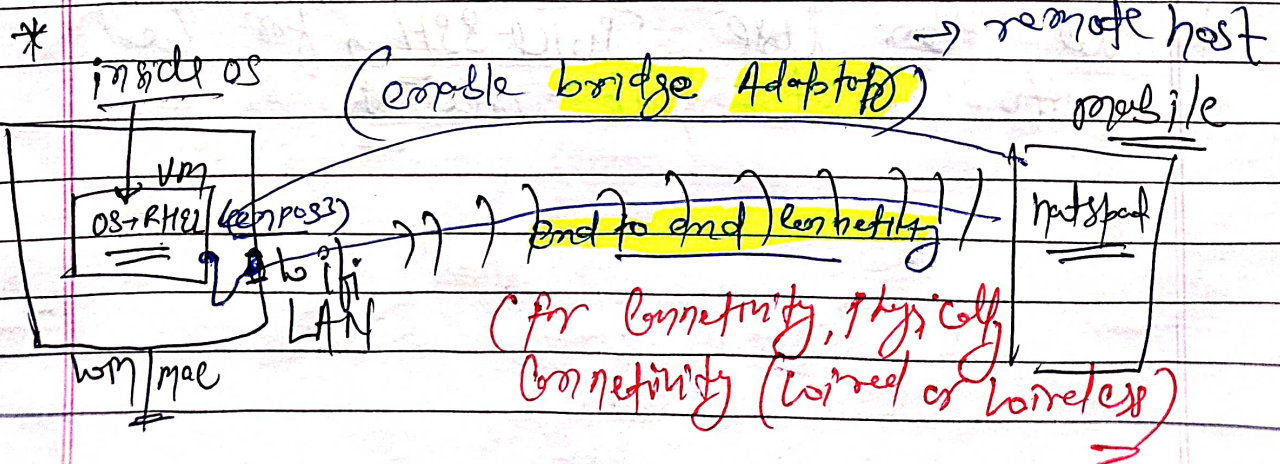 *
→ remote host
inside os
(enable bridge Adaptor)
mobile
VM
OS→RHEL (enp0s3)
end to end Connetivity
hotspot
wifi
LAN
(for Connetivity, Physically
Connetivity (wired or wireless)
win/mac